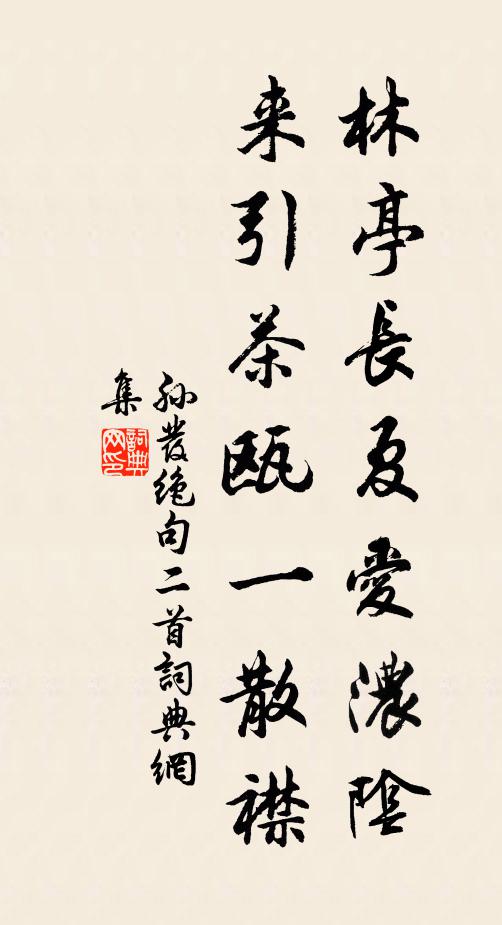 林亭長夏愛濃陰
来引茶甌一散襟
孙發絶句二首詞典網
集
詞典网印